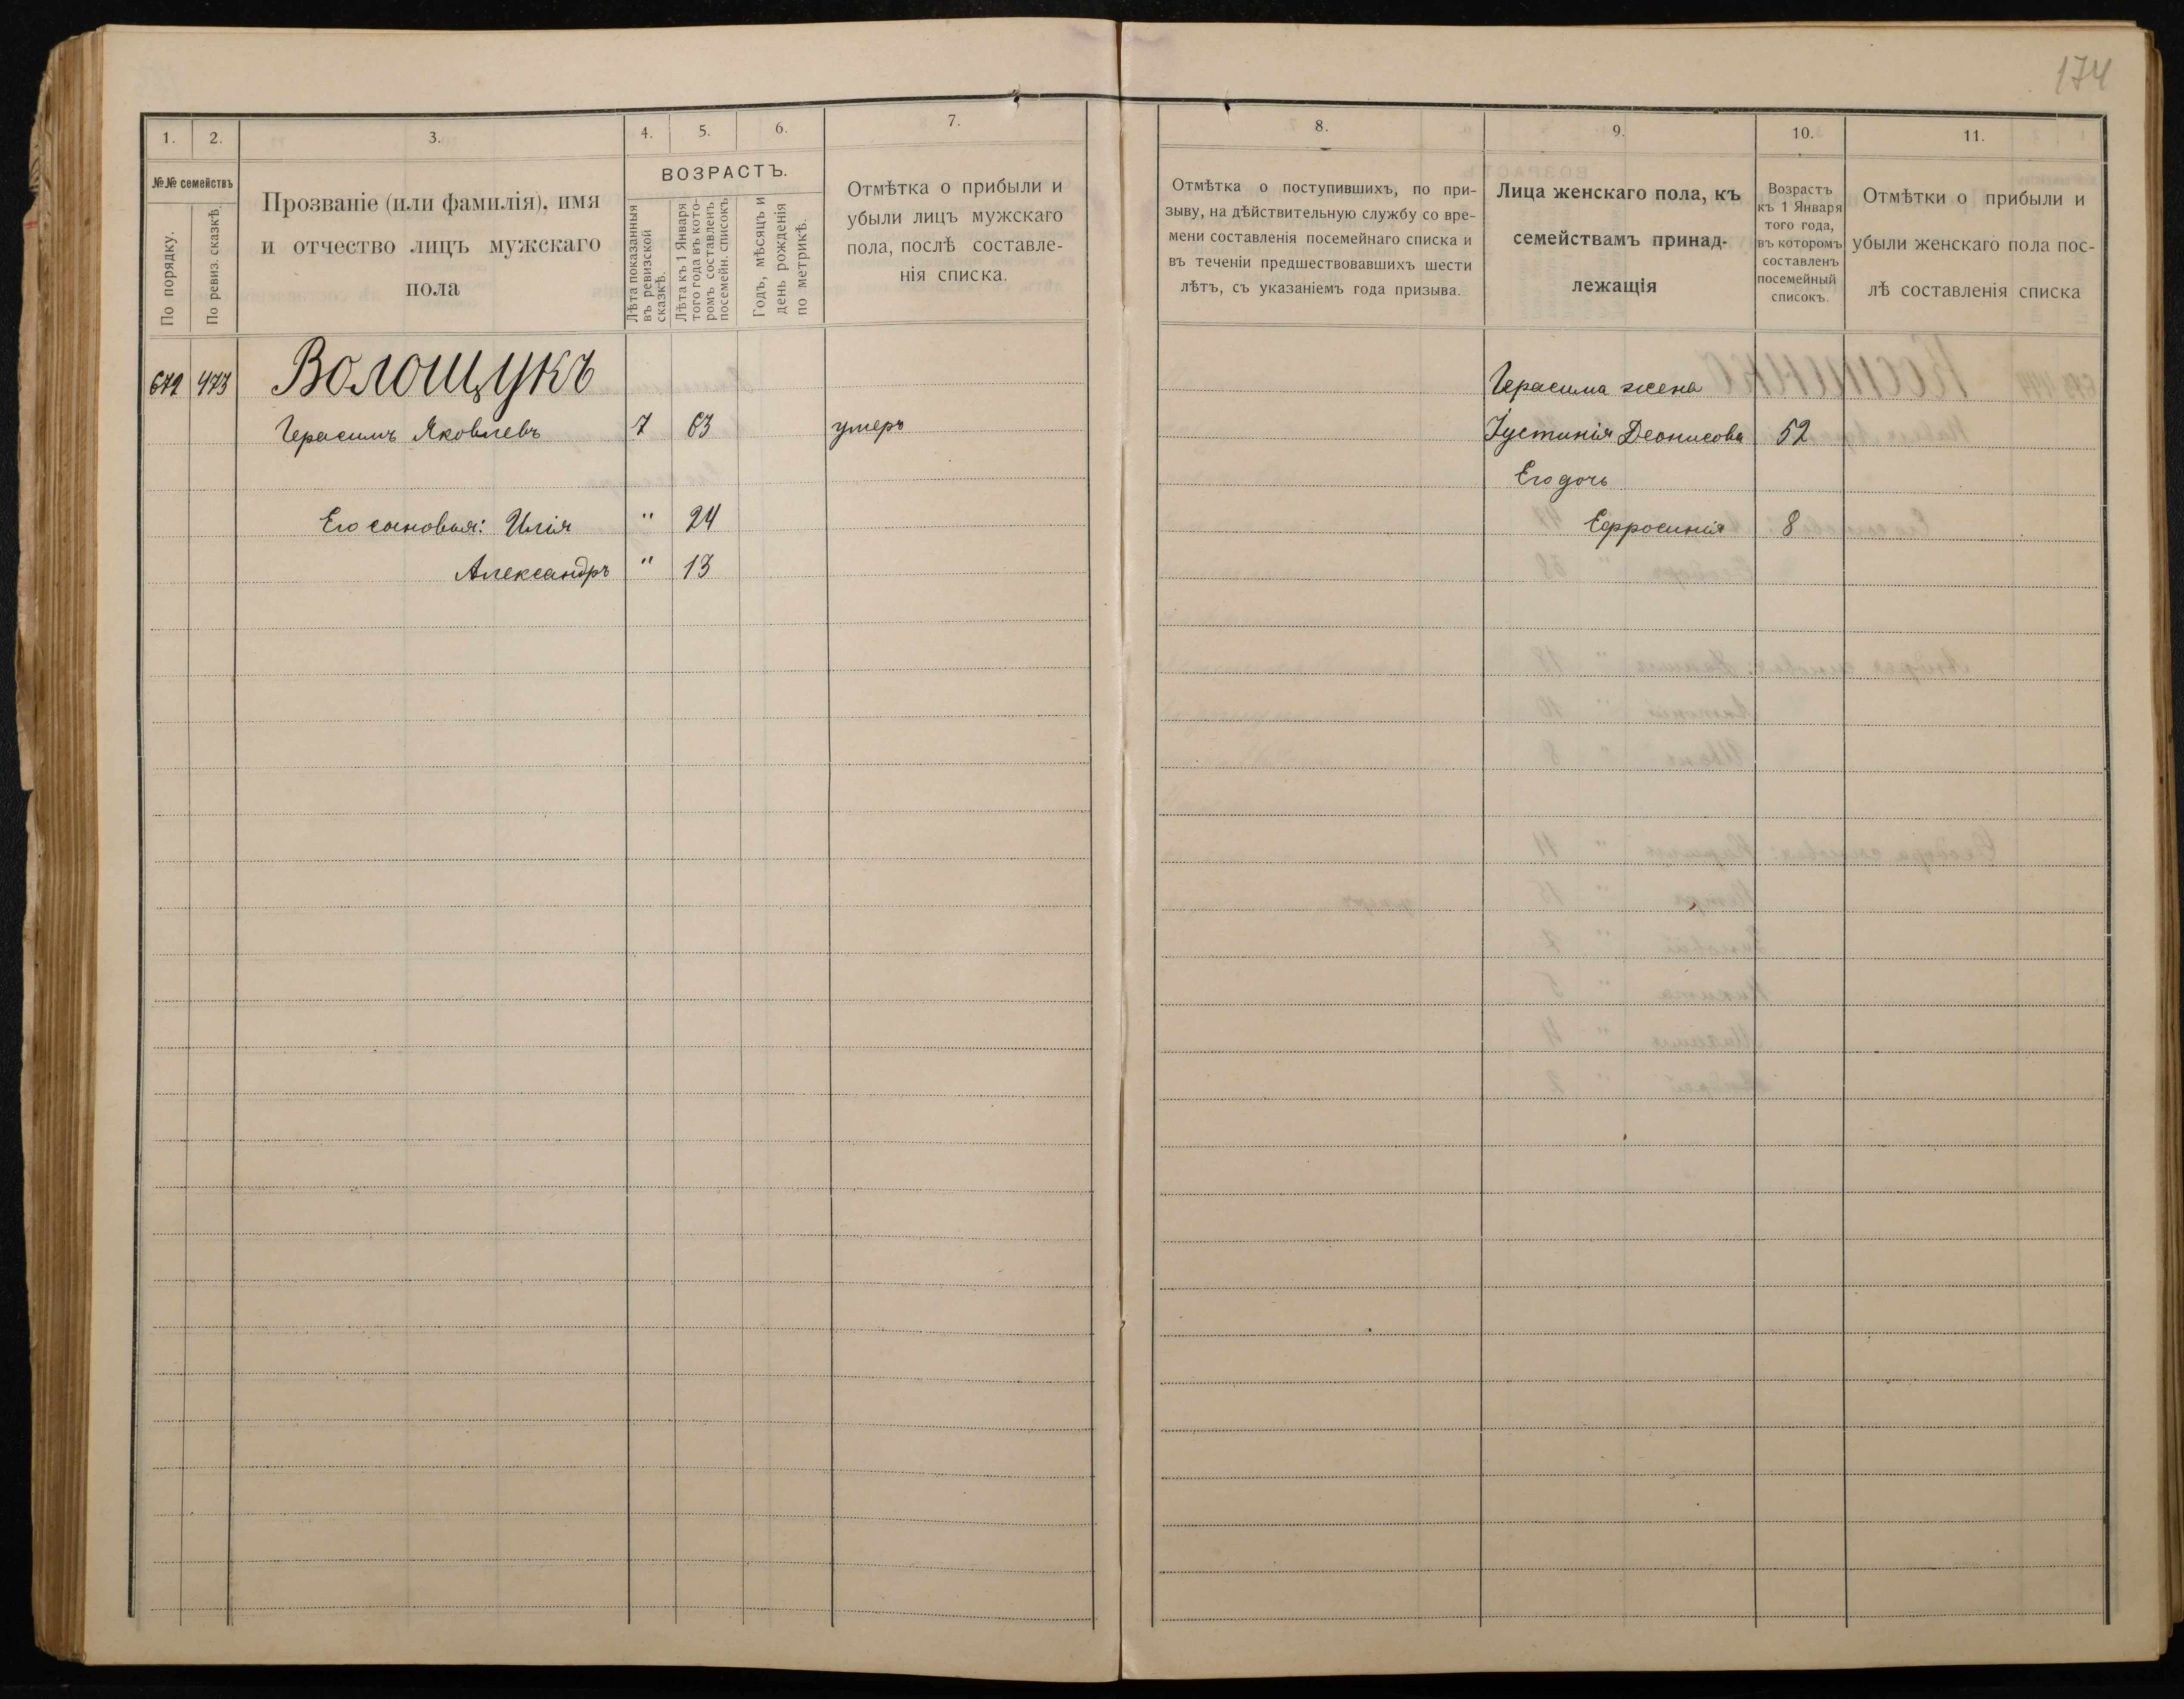 174
1. 2. 3. 4. 5. 6. 7.
№№ семействъ
По порядку.
По ревиз. сказкѣ.
Прозваніе (или фамилія), имя
и отчество лицъ мужскаго
пола
ВОЗРАСТЪ.
Лѣта показанныя
въ ревизской
сказкѣ.
Лѣта къ 1 Января
того года въ кото-
ромъ составленъ
посемейн. списокъ
Годъ, мѣсяцъ и
день рожденія
по метрикѣ.
Отмѣтка о прибыли и
убыли лицъ мужскаго
пола, послѣ составле-
нія списка.
672 473 Волощукъ
Герасимъ Яковлевъ 7 63 умеръ
Его сыновья: Илія " 24
Александръ " 13
8. 9. 10. 11.
Отмѣтка о поступившихъ, по при-
зыву, на дѣйствительную службу со вре-
мени составленія посемейнаго списка и
въ теченіи предшествовавшихъ шести
лѣтъ, съ указаніемъ года призыва.
Лица женскаго пола, къ
семействамъ принад-
лежащія
Возрастъ
къ 1 Января
того года,
въ которомъ
составленъ
посемейный
списокъ.
Отмѣтки о прибыли и
убыли женскаго пола пос-
лѣ составленія списка
Герасима жена
Іустинія Деонисова 52
Его дочь
Ефросинія 8